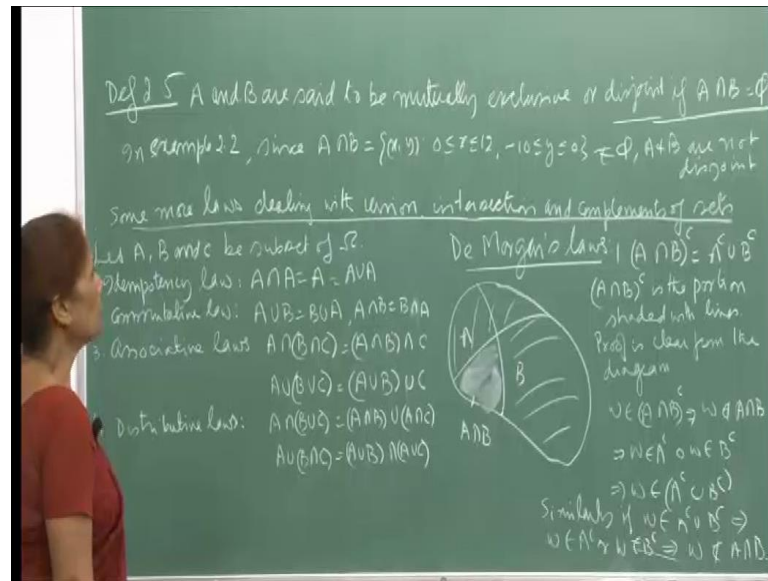 Def 2.5 A and B are said to be mutually exclusive or disjoint if A ∩ B = Φ
In example 2.2, since A ∩ B = {(x, y) 0 ≤ x ≤ 12, -10 ≤ y ≤ 0} ≠ Φ, A & B are not
disjoint
Some more laws dealing with union intersection and complements of sets
Let A, B and C be subset of Ω.
Idempotency law: A∩A = A = A∪A
commutative law: A∪B = B∪A, A∩B = B∩A
3. Associative laws A∩(B∩C) = (A∩B)∩C
A∪(B∪C) = (A∪B)∪C
Distributive laws: A∩(B∪C) = (A∩B)∪(A∩C)
A∪(B∩C) = (A∪B)∩(A∪C)
De Morgan's laws: 1 (A∩B)ᶜ = Aᶜ∪Bᶜ
A
B
A∩B
(A∩B)ᶜ is the portion
shaded with lines.
Proof is clear from the
diagram
ω∈(A∩B)ᶜ ⇒ ω∉A∩B
⇒ ω∈Aᶜ or ω∈Bᶜ
⇒ ω∈(Aᶜ∪Bᶜ)
Similarly if ω∈Aᶜ∪Bᶜ ⇒
ω∈Aᶜ or ω∈Bᶜ ⇒ ω∉A∩B